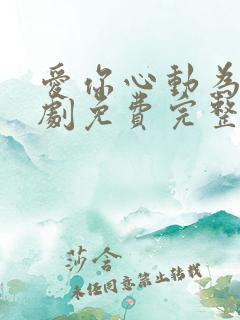 愛你心動為
劇免費完整
莎含
未經同意禁止轉載